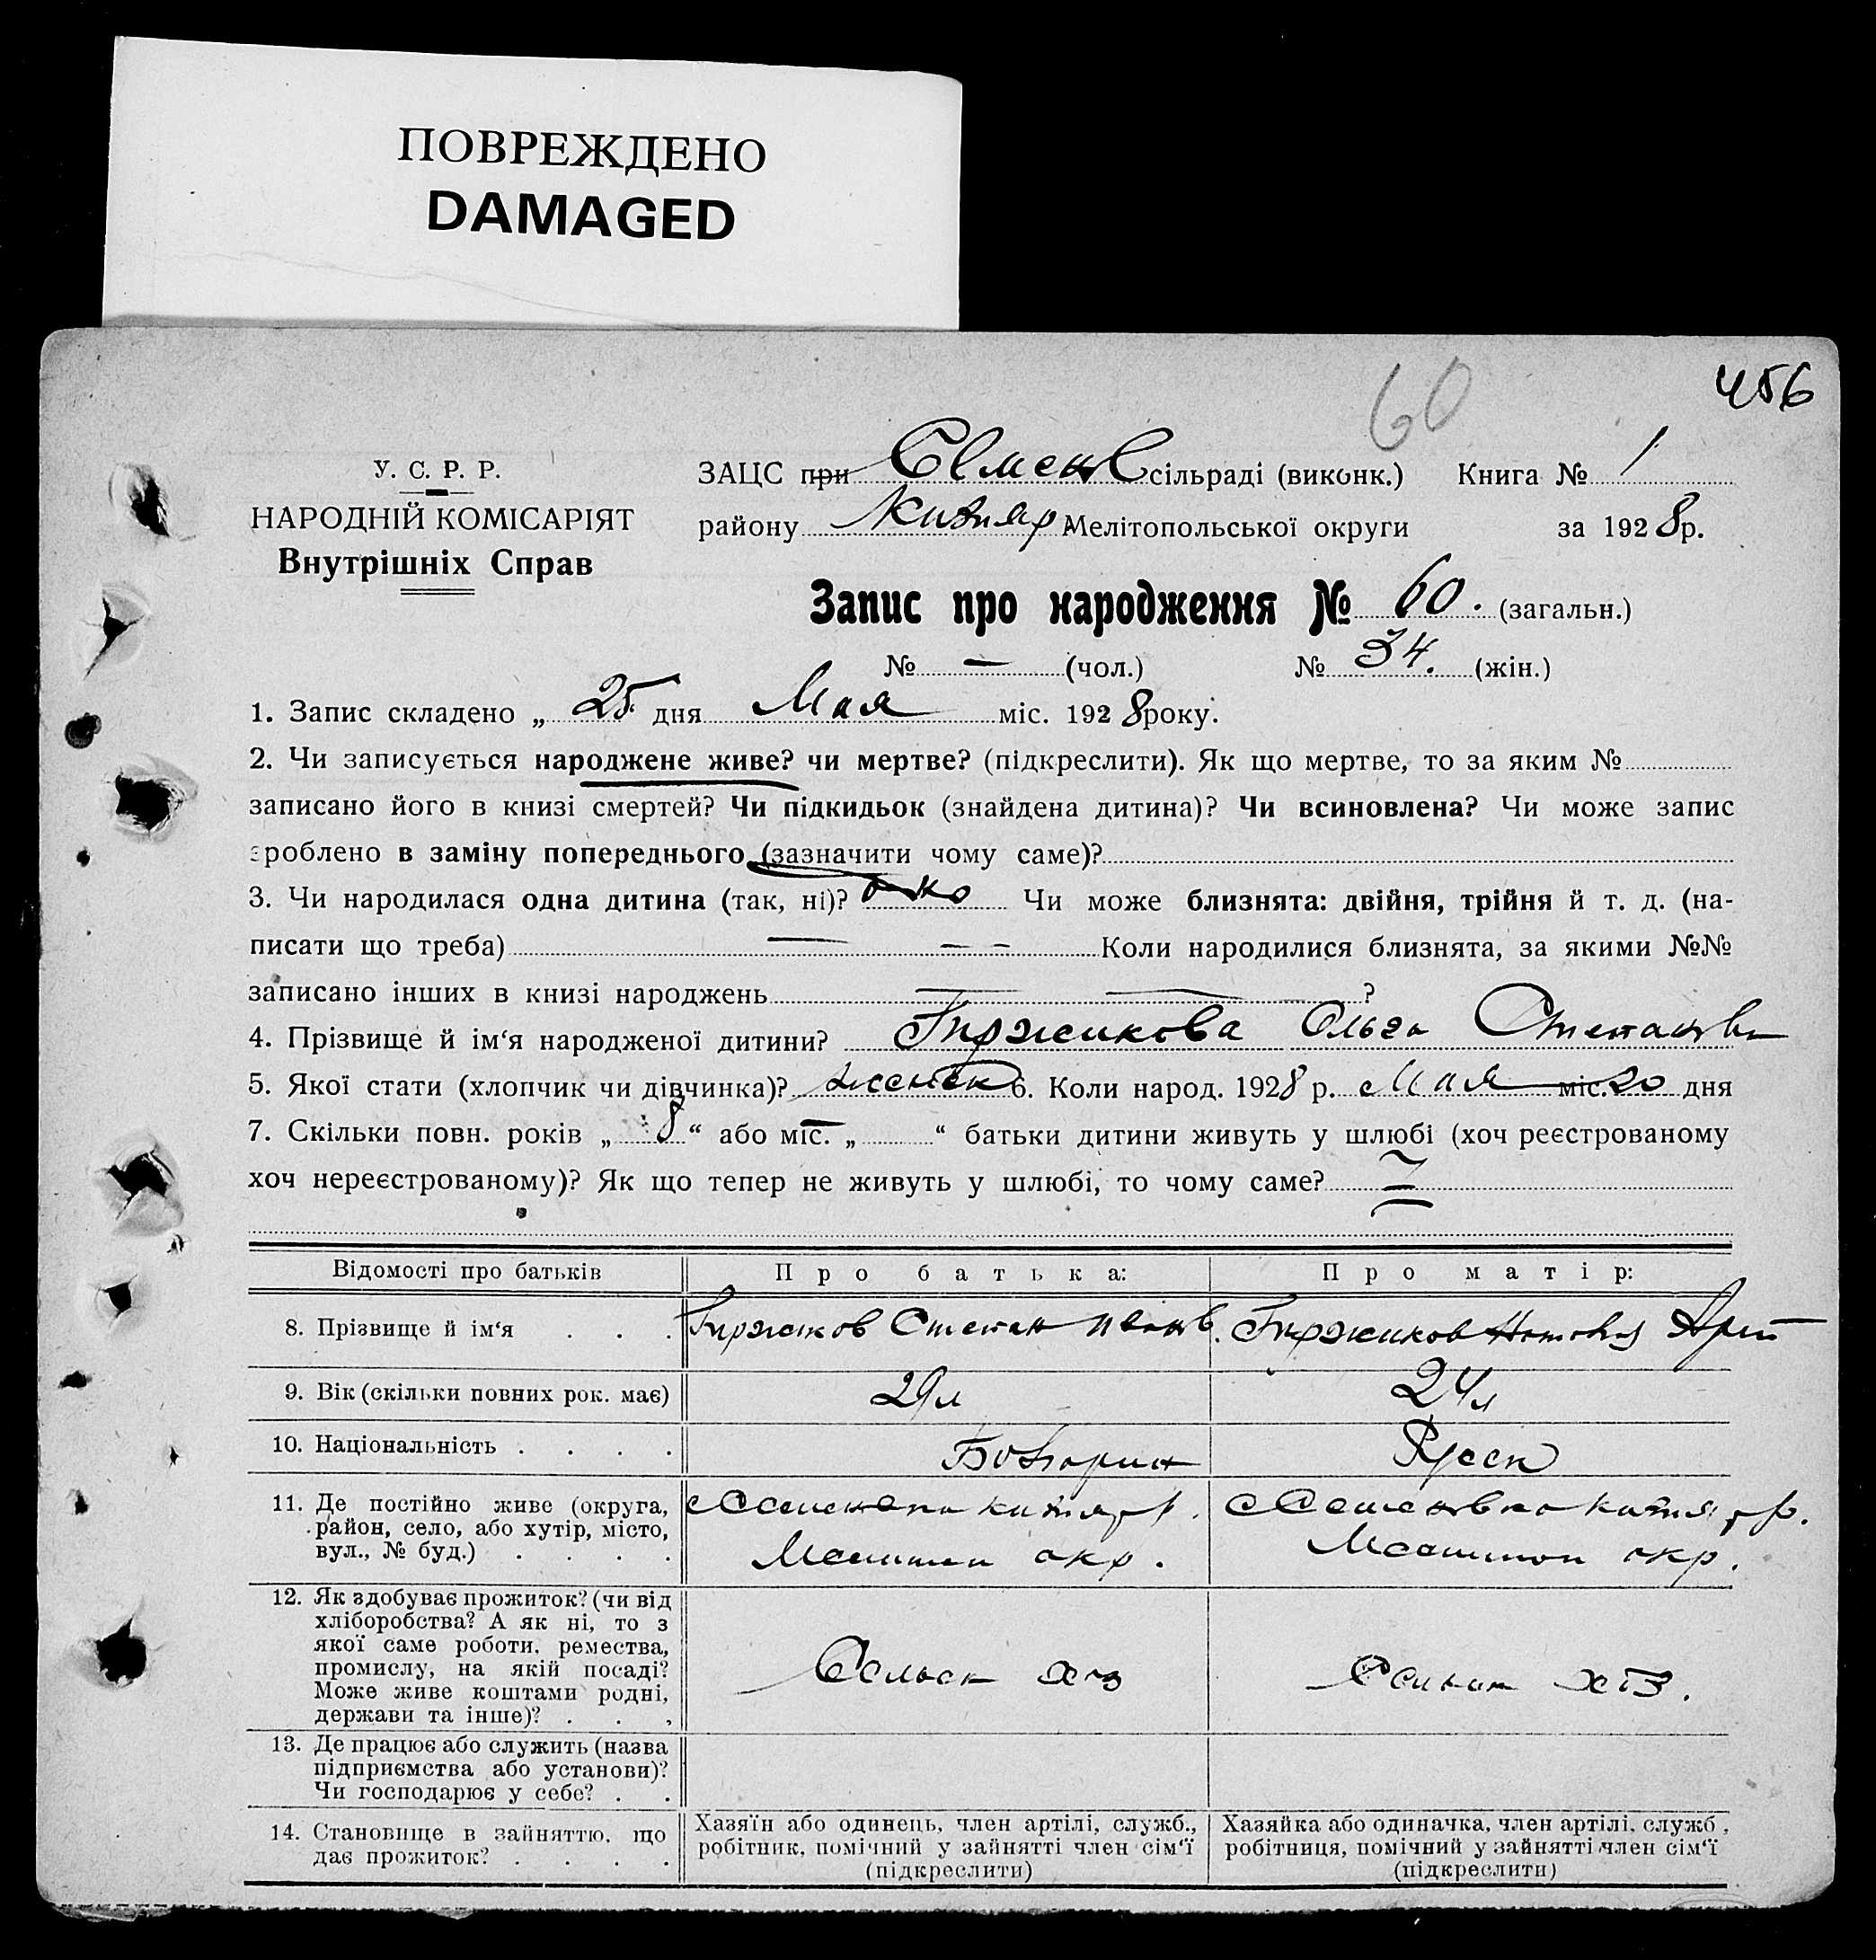 ПОВРЕЖДЕНО
DAMAGED
60
456
У. С. Р. Р.
НАРОДНІЙ КОМІСАРІЯТ
Внутрішніх Справ
ЗАЦС при сільраді (виконк.) Книга № 1
району Мелітопольської округи за 1928 р.
Запис про народження № 60. (загальн.)
№ — (чол.) № 34. (жін.)
1. Запис складено „ 25 дня Мая міс. 1928 року.
2. Чи записується народжене живе? чи мертве? (підкреслити). Як що мертве, то за яким №
записано його в книзі смертей? Чи підкидьок (знайдена дитина)? Чи всиновлена? Чи може запис
зроблено в заміну попереднього (зазначити чому саме)?
3. Чи народилася одна дитина (так, ні)? Чи може близнята: двійня, трійня й т. д. (на-
писати що треба) — — — Коли народилися близнята, за якими №№
записано інших в книзі народжень — — ?
4. Прізвище й ім‘я народженої дитини? Гиржикова Ольга Степановн
5. Якої стати (хлопчик чи дівчинка)? женск 6. Коли народ. 1928 р. Мая міс. 20 дня
7. Скільки повн. років „ 8 “ або міс. „ “ батьки дитини живуть у шлюбі (хоч реєстрованому
хоч нереєстрованому)? Як що тепер не живуть у шлюбі, то чому саме?
Відомості про батьків Про батька: Про матір:
8. Прізвище й ім‘я . . . Гиржиков Степан Иванов. Гиржиков
9. Вік (скільки повних рок. має) 29 л 24 л
10. Національність . . . . Болгарин Русск
11. Де постійно живе (округа,
район, село, або хутір, місто,
вул., № буд.) . . . .
окр. окр.
12. Як здобуває прожиток? (чи від
хліборобства? А як ні, то з
якої саме роботи, ремества,
промислу, на якій посаді?
Може живе коштами родні,
держави та інше)? . . .
Сельск хоз хоз.
13. Де працює або служить (назва
підприємства або установи)?
Чи господарює у себе? . .
14. Становище в зайняттю, що
дає прожиток? . . . .
Хазяїн або одинець, член артілі, служб.,
робітник, помічний у зайнятті член сім‘ї
(підкреслити)
Хазяйка або одиначка, член артілі, служб.,
робітниця, помічний у зайнятті член сім‘ї
(підкреслити)